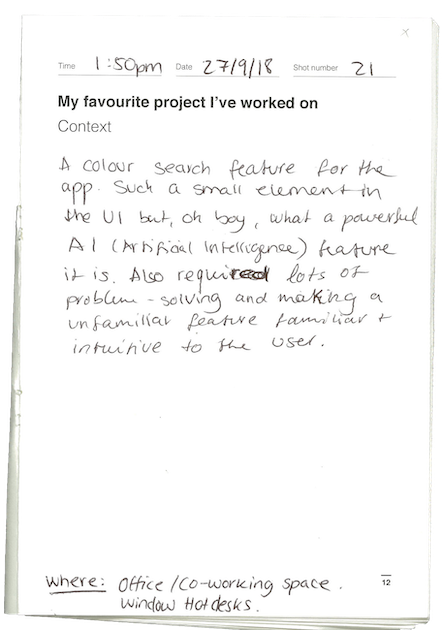 Time 1:50pm Date 27/9/18 Shot number 21
My favourite project I've worked on
Context
A colour search feature for the
app. Such a small element in
the UI but, oh boy, what a powerful
AI (Artificial Intelligence) feature
it is. Also required lots of
problem-solving and making a
unfamiliar feature familiar +
intuitive to the user.
Where: Office/Co-working space.
Window Hotdesks.
12